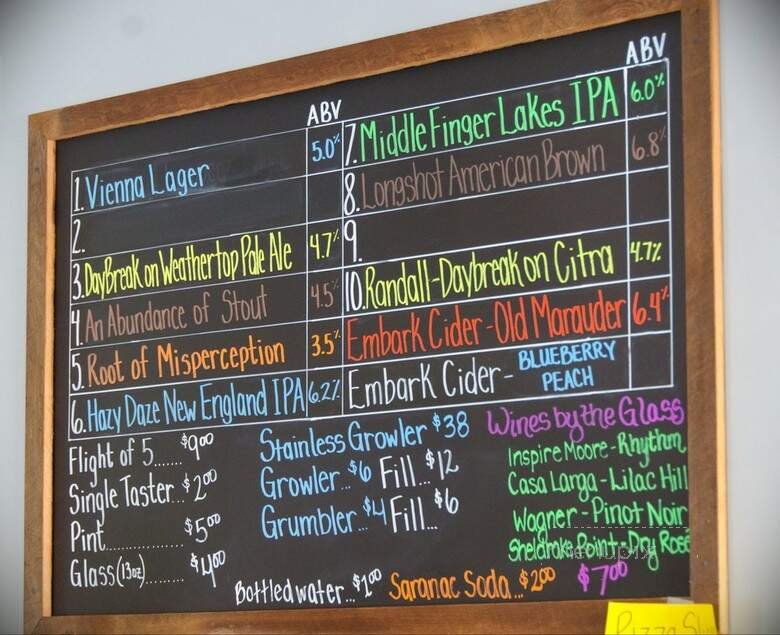 ABV
1. Vienna Lager 5.0%
2.
3. DayBreak on Weathertop Pale Ale 4.7%
4. An Abundance of Stout 4.5%
5. Root of Misperception 3.5%
6. Hazy Daze New England IPA 6.2%
ABV
7. Middle Finger Lakes IPA 6.0%
8. Longshot American Brown 6.8%
9.
10. Randall-Daybreak on Citra 4.7%
Embark Cider-Old Marauder 6.4%
Embark Cider- BLUEBERRY
PEACH
Flight of 5...... $9.00
Single Taster.. $2.00
Pint............ $5.00
Glass (13oz)........ $4.00
Stainless Growler $38
Growler...$6 Fill... $12
Grumbler...$4 Fill... $6
Wines by the Glass
Inspire Moore-Rhythm
Casa Larga-Lilac Hill
Wagner-Pinot Noir
Sheldrake Point-Dry Rosé
$7.00
Bottled water... $1.00 Saranac Soda... $2.00
Pizza